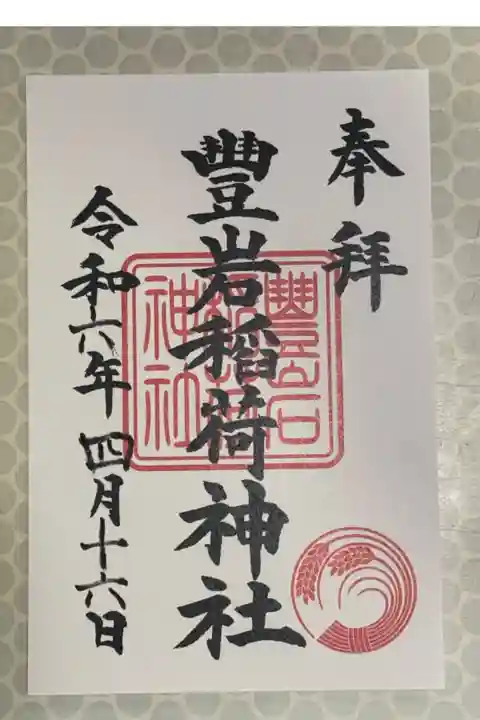 奉拝
豐岩稲荷神社
令和六年 四月十六日
豐岩
稲荷
神社